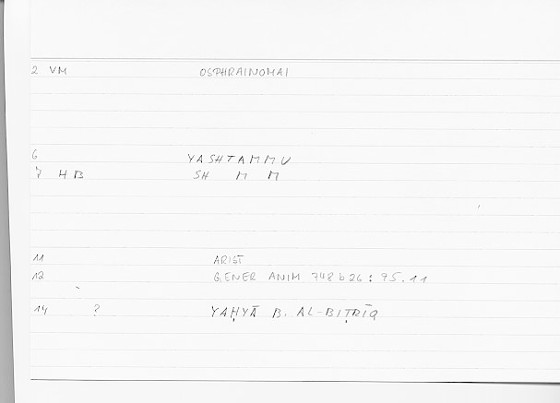 2 VM OSPHRAINOMAI
6 YASHTAMMU
7 HB SH M M
11 ARIST
12 GENER ANIM 748b26 : 75.11
14 ? YAḤYĀ B. AL-BIṬRĪQ